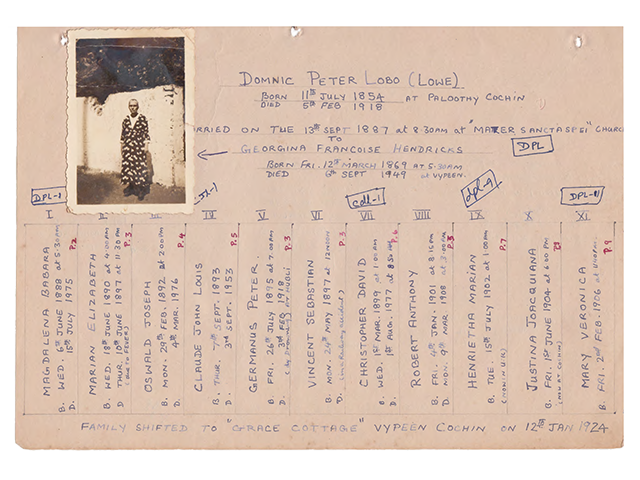 DOMNIC PETER LOBO (LOWE)
BORN 11TH JULY 1854 AT PALOOTHY COCHIN
DIED 5TH FEB 1918
RRIED ON TUE 13TH SEPT 1887 at 8.30am at "MATER SANCTA SPEI" CHURCH
TO
GEORGINA FRANCOISE HENDRICKS
DPL
BORN FRI. 12TH MARCH 1869 AT 5.30AM
DIED 6TH SEPT 1949 at VYPEEN.
DPL-1
cdl-1
dpl-9
DPL-11
I
II
III
IV
V
VI
VII
VIII
IX
X
XI
MAGDALENA BABARA
B. WED. 6TH JUNE 1888 at 5.30AM
D. 15TH JULY 1975
P.2
MARIAN ELIZABETH
B. WED. 18TH JUNE 1890 at 4.00AM
D THUR. 10TH JUNE 1897 at 11.30 PM
P.3
OSWALD JOSEPH
B. MON. 29TH FEB. 1892 at 2.00AM
D. 4TH MAR. 1976
P.4
CLAUDE JOHN LOUIS
B. THUR. 7TH SEPT. 1893
D 3RD SEPT. 1953
P.5
GERMANUS PETER.
B. FRI. 26TH JULY 1895 at 7.00AM
D. 2ND FEB. 1918
P.3
VINCENT SEBASTIAN
B. MON. 24TH MAY 1897 at 12 NOON
D.
P.3
CHRISTOPHER DAVID
B. WED. 1ST MAR. 1899 at 1.00AM
D. WED. 1ST AUG. 1977 at 8.50
P.6
ROBERT ANTHONY
B. FRI. 4TH JAN. 1901 at 8.15PM
D. MON. 9TH MAR 1908
P.3
HENRIETHA MARIAN
B. TUE. 15TH JULY 1902 at 1.00AM
P.7
JUSTINA JOACQUIANA
B. FRI. 1ST JUNE 1904 at 6.00 PM
MARY VERONICA
B. FRI. 2ND FEB. 1906 at
P.9
FAMILY SHIFTED TO "GRACE COTTAGE" VYPEEN COCHIN ON 12TH JAN 1924